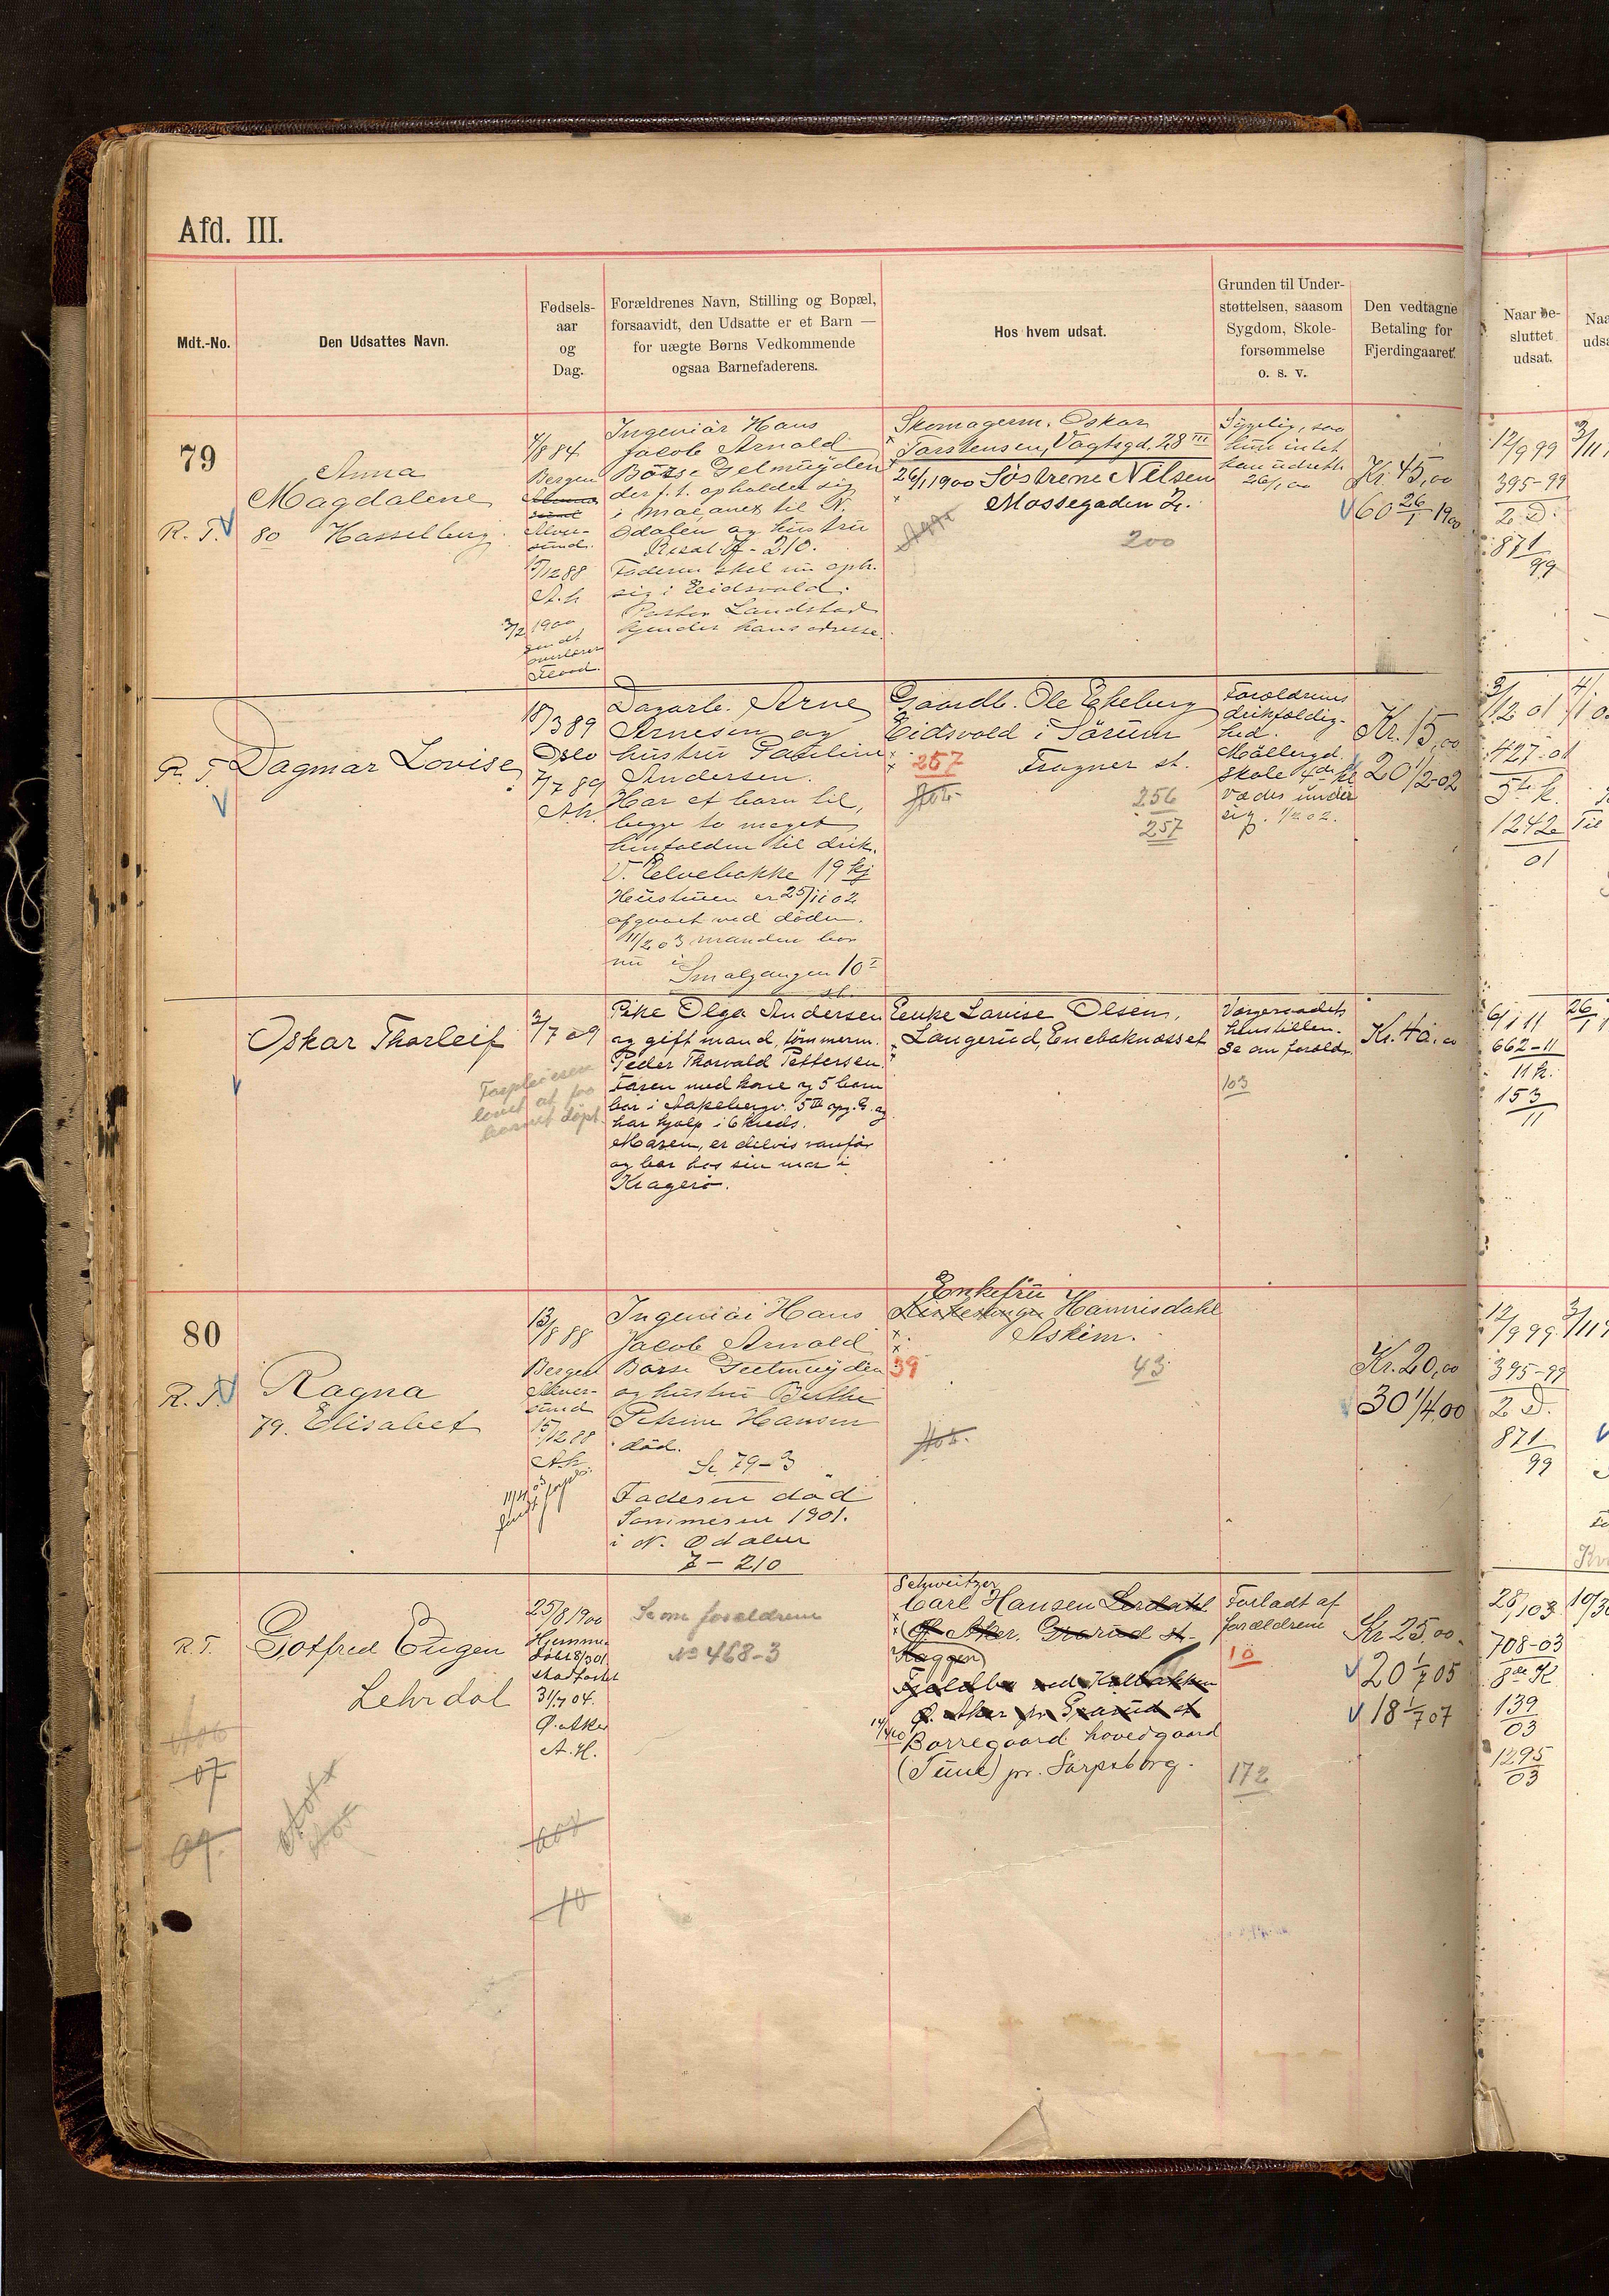 Afd. III.
Mdt.-No.
Den Udsattes Navn.
Fødsels-
aar
og
Dag.
Forældrenes Navn, Stilling og Bopæl,
forsaavidt, den Udsatte er et Barn —
for uægte Børns Vedkommende
ogsaa Barnefaderens.
Hos hvem udsat.
Grunden til Under-
støttelsen, saasom
Sygdom, Skole-
forsømmelse
o. s. v.
Den vedtagne
Betaling for
Fjerdingaaret.
Naar be-
sluttet
udsat.
79
R. T.
Anna
Magdalene
80 Hasselberg
4/8 84
Bergen
15/12 88
A. h.
3/2 1900
Ingeniör Hans
Jacob Arnold
Börse Gelmuyden
der f. t. opholder sig
i
Odalen og hustru
7 - 210.
Faderen skal nu oph.
sig i Eidsvold.
Pastor Landstad
kjender hans adresse.
Skomagerm. Oskar
Torstensen, Vagtsgd. 28 III
26/1 1900 Söstrene Nilsen
Mossegaden 2.
200
Sygelig, saa
hun intet
kan udrette
26/1 00
Kr. 45,00
60 26/1 1900
12/9 99
395-99
2 D.
871
99
R. T.
Dagmar Lovise
18/3 89
Oslo
7/7 89
A.h.
Dagarb. Arne
Arnesen og
hustru Pauline
Andersen.
Har et barn til,
begge to meget
henfalden til drik.
V. Elvebakke 19 kj
Hustruen er 25/11 02
afgaaet ved døden.
11/2 03 manden bor
nu i
Smalgangen 10 I
Gaardb. Ole Ekeberg
Eidsvold i Sörum
257
Frogner st.
256
257
Forældrenes
drikfældig-
hed.
Möllergd.
skole 4de kl
væder under
sig. 1/2 02.
Kr. 15,00
20 1/2 02
3/12 01
427-01
5te k.
1242
01
Oskar Thorleif
2/7 09
Forpleiesen
lovet at faa
barnet døpt.
Pike Olga Andersen
og gift mand, tömmerm.
Peder Thorvald Pettersen.
Faren med kone og 5 barn
bor i Aakebergv. 5 III opg. G. og
har hjælp i 6 kreds.
Moren, er delvis vanför
og bor hos sin mor i
Kragerö.
Enke Lovise Olsen,
Langerud, Enebaknesset
Vergeraadets
henstillen.
Se om foreldr.
103
Kr. 40.00
6/1 11
662-11
11 k.
153
11
80
R. T.
Ragna
79. Elisabet
13/8 88
Bergen
15/12 88
A.h.
Ingeniör Hans
Jacob Arnold
Börse Geelmuyden
og hustru Berthe
Petrine Hansen
död.
Se 79-3
Faderen död
Sommeren 1901.
i N. Odalen
7 - 210
Enkefru
Hannisdahl
Askim.
39
43
Kr. 20,00
30 1/4 00
12/9 99
395-99
2 D.
871
99
R. T.
Gotfred Eugen
Lehrdal
25/8 1900
Hjemme
døbt 8/3 01
stadfæstet
31/7 04.
Ø. Aker
A. H.
Se om foreldrene
No 468-3
Schweitzer
Carl Hansen Lerdahl
Ø. Aker. Grorud st.
Borregaard hovedgaard
(Tune) pr. Sarpsborg.
Forladt af
forældrene
10
172
Kr. 25,00
20 1/7 05
18 1/7 07
28/1 03
708-03
8de K
139
03
1295
03
07
09.
10